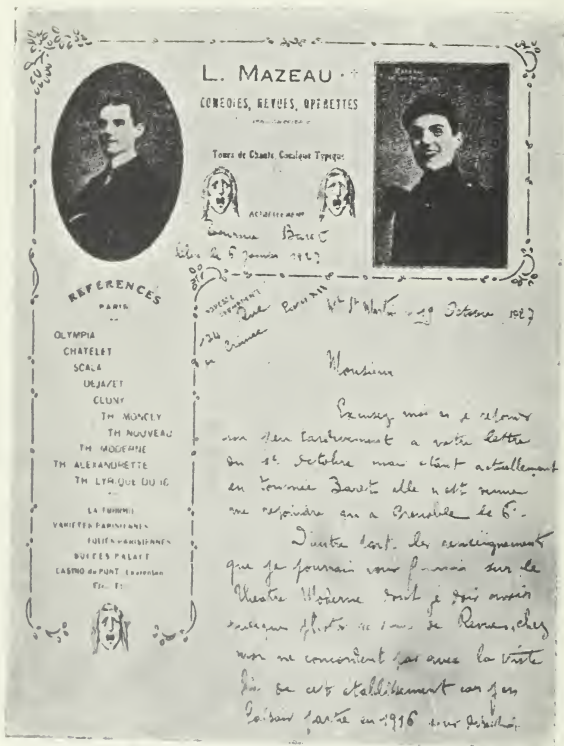 L. MAZEAU
COMÉDIES, REVUES, OPÉRETTES
Tours de Chants, Comique Typique
ACTUELLEMENT
Tournée Baret
libre le 5 janvier 1927
RÉFÉRENCES
PARIS
OLYMPIA
CHATELET
SCALA
DEJAZET
CLUNY
TH. MONCEY
TH NOUVEAU
TH. MODERNE
TH ALEXANDRETTE
TH LYRIQUE DU
LA FOURMI
VARIÉTÉS PARISIENNES
FOLIES PARISIENNES
DOLCES PALACE
CASINO du PONT
124 Rue Paris XII St Martin 19 Octobre 1927
Monsieur
Excusez moi si je réponds
un peu tardivement a votre lettre
du 1er Octobre mais étant actuellement
en tournée Baret elle est venue
me rejoindre a Grenoble le 6.
D'autre part, les renseignements
que je pourrais vous fournir sur le
Théâtre Moderne dont je dois avoir
quelques photos de Revues, chez
moi ne concordent pas avec la triste
fin de cet établissement car j'en
faisais partie en 1916 sous